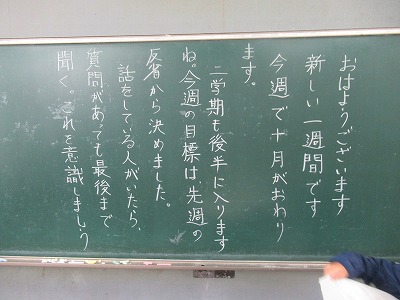 おはようございます
新しい一週間です
今週で十月がおわり
ます。
二学期も後半に入ります
ね。今週の目標は、先週の
反省から決めました。
話をしている人がいたら、
質問があっても最後まで
聞く。これを意識しましょう